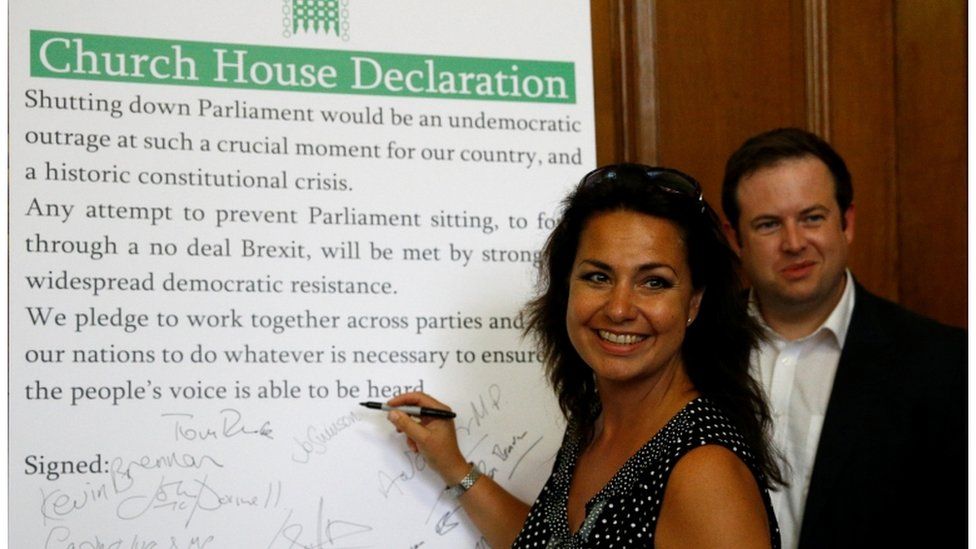 Church House Declaration
Shutting down Parliament would be an undemocratic
outrage at such a crucial moment for our country, and
a historic constitutional crisis.
Any attempt to prevent Parliament sitting, to fo
through a no deal Brexit, will be met by strong
widespread democratic resistance.
We pledge to work together across parties and
our nations to do whatever is necessary to ensure
the people's voice is able to be heard
Signed:
Kevin Brennan
John McDonnell